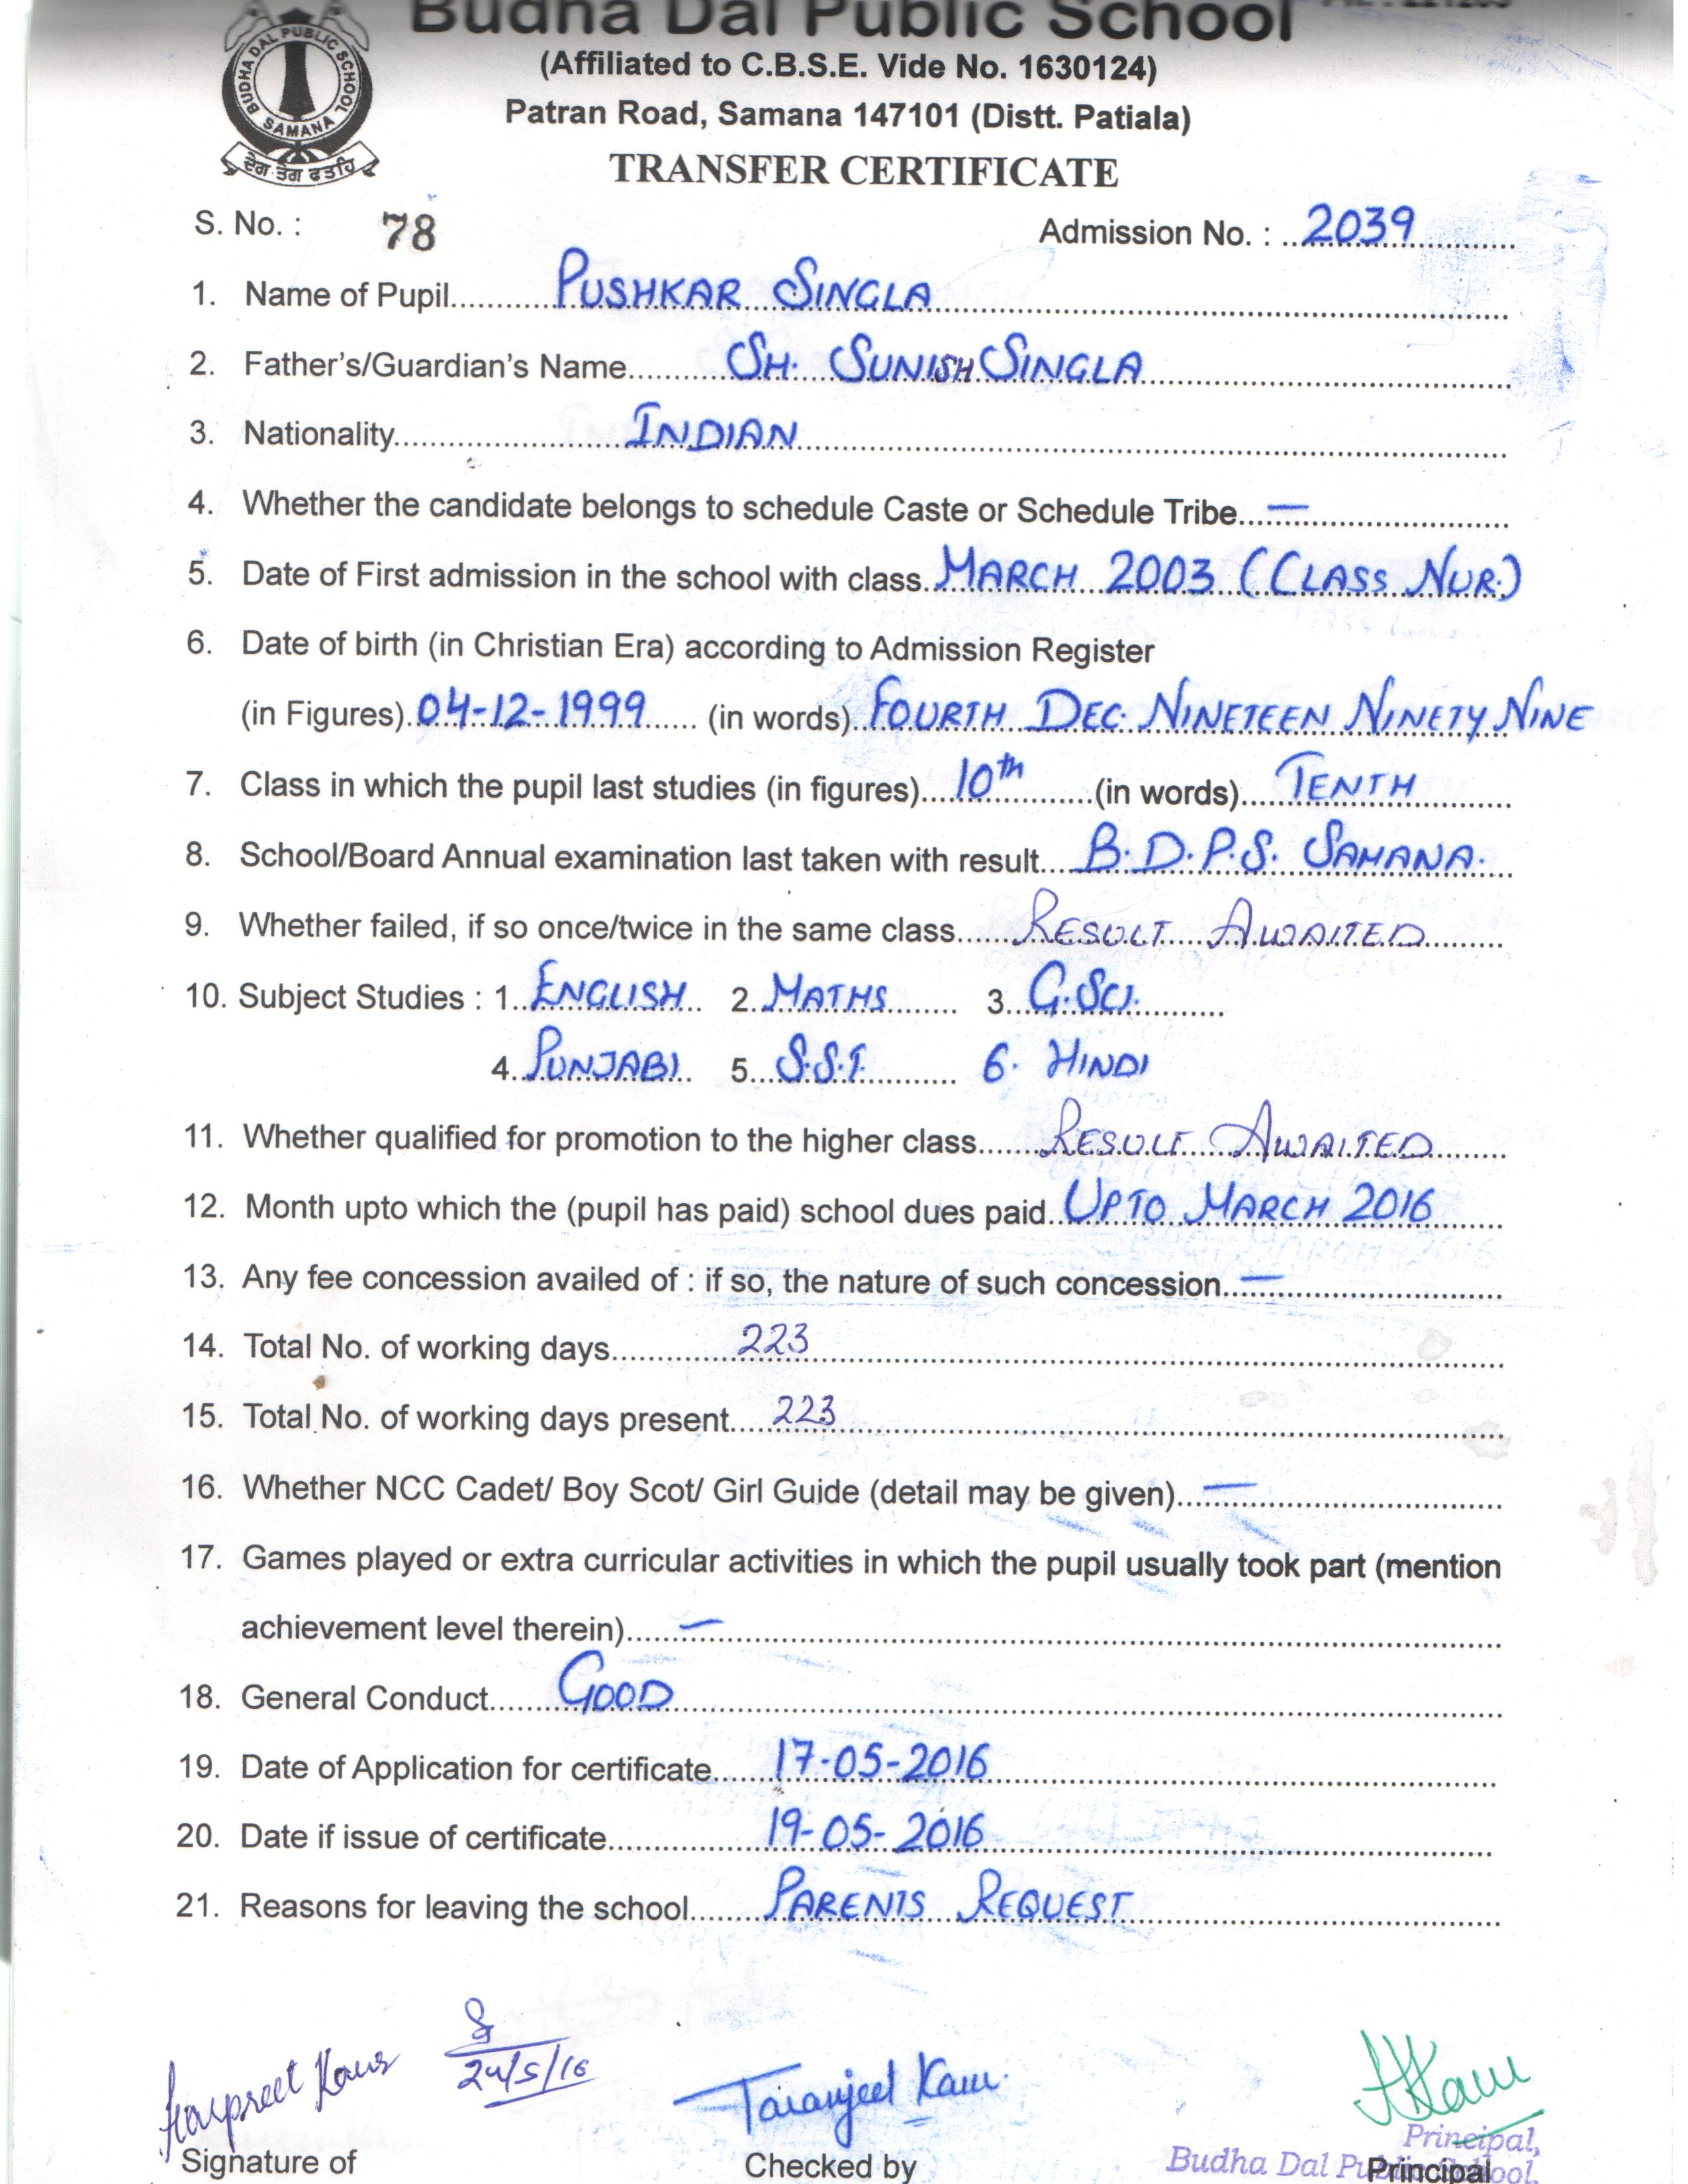 Budha Dal Public School
BUDHA DAL PUBLIC SCHOOL
SAMANA
ਦੇਗ ਤੇਗ ਫਤਹਿ
(Affiliated to C.B.S.E. Vide No. 1630124)
Patran Road, Samana 147101 (Distt. Patiala)
TRANSFER CERTIFICATE
S. No. : 78 Admission No. : 2039
1. Name of Pupil PUSHKAR SINGLA
2. Father's/Guardian's Name SH. SUNISH SINGLA
3. Nationality INDIAN
4. Whether the candidate belongs to schedule Caste or Schedule Tribe —
5. Date of First admission in the school with class MARCH 2003 (CLASS NUR.)
6. Date of birth (in Christian Era) according to Admission Register
(in Figures) 04-12-1999 (in words) FOURTH DEC. NINETEEN NINETY NINE
7. Class in which the pupil last studies (in figures) 10th (in words) TENTH
8. School/Board Annual examination last taken with result B.D.P.S. SAMANA.
9. Whether failed, if so once/twice in the same class RESULT AWAITED
10. Subject Studies : 1. ENGLISH 2. MATHS 3. G.SCI.
4. PUNJABI 5. S.S.T. 6. HINDI
11. Whether qualified for promotion to the higher class RESULT AWAITED
12. Month upto which the (pupil has paid) school dues paid UPTO MARCH 2016
13. Any fee concession availed of : if so, the nature of such concession —
14. Total No. of working days 223
15. Total No. of working days present 223
16. Whether NCC Cadet/ Boy Scot/ Girl Guide (detail may be given) —
17. Games played or extra curricular activities in which the pupil usually took part (mention
achievement level therein) —
18. General Conduct GOOD
19. Date of Application for certificate 17-05-2016
20. Date if issue of certificate 19-05-2016
21. Reasons for leaving the school PARENTS REQUEST
Harpreet Kaur 24/5/16 Taranjeet Kaur
Principal,
Budha Dal Public School,
Signature of Checked by Principal